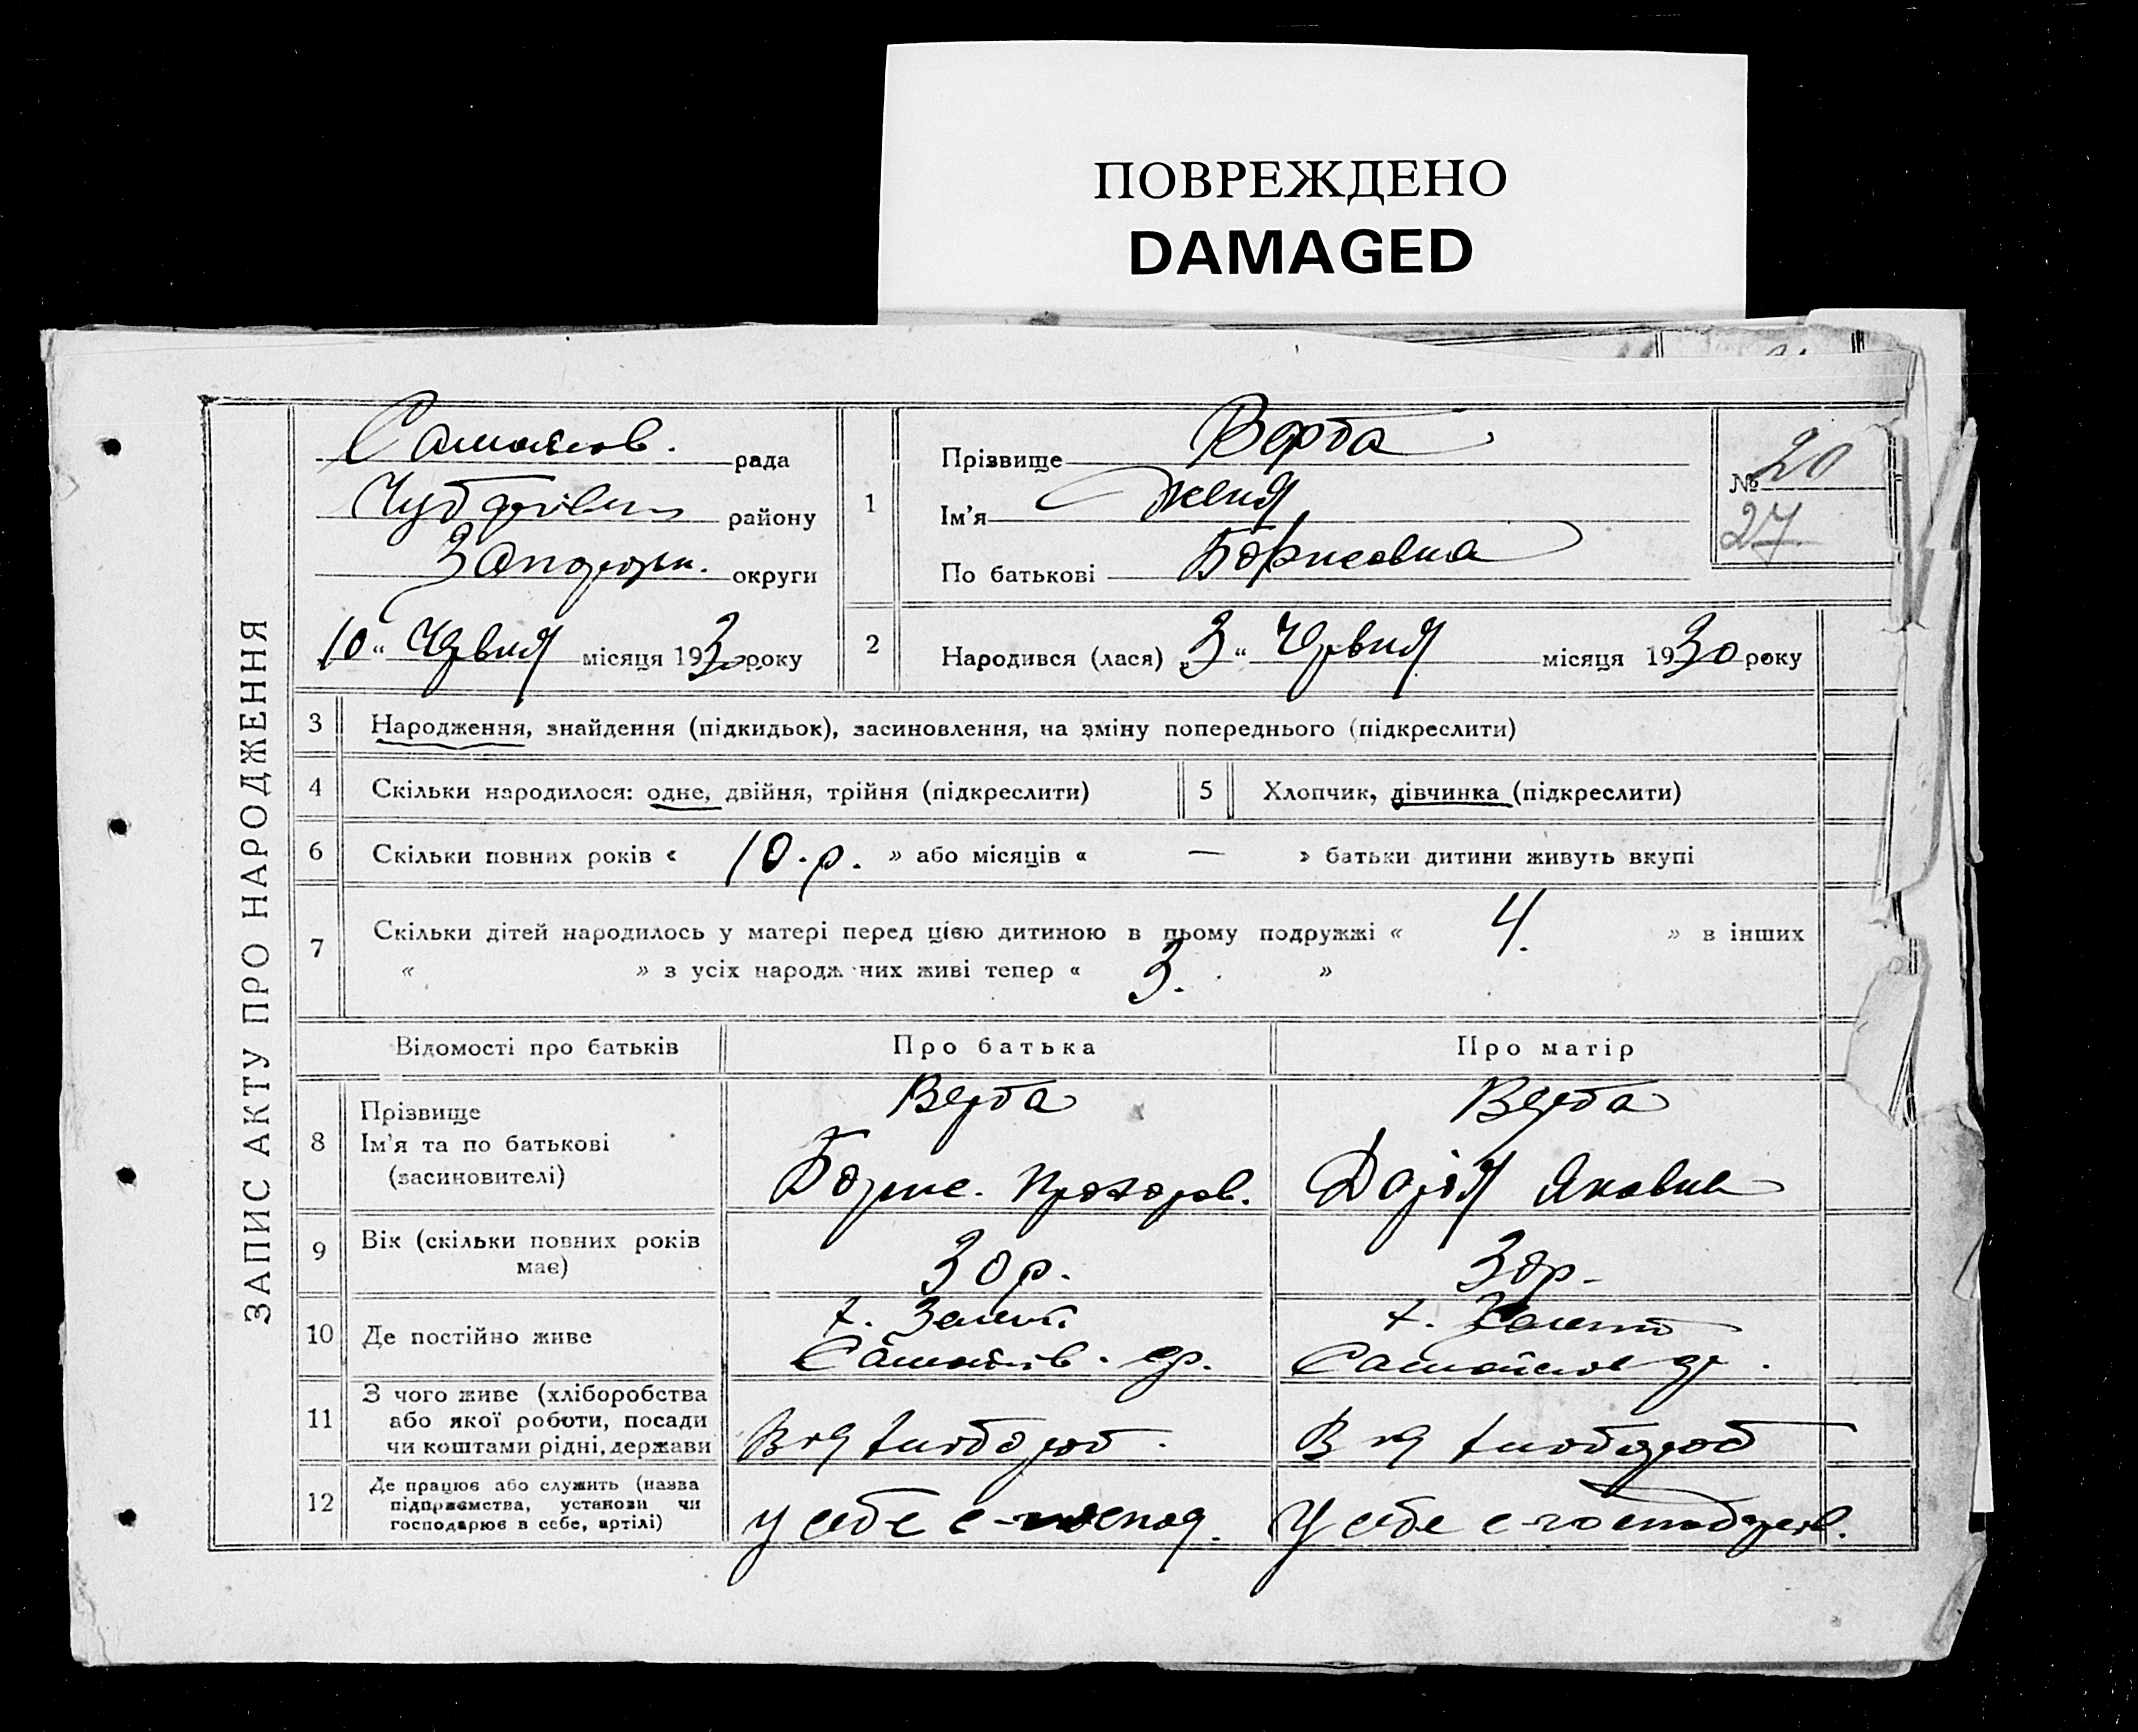 ПОВРЕЖДЕНО
DAMAGED
ЗАПИС АКТУ ПРО НАРОДЖЕННЯ
Самойлов. рада
району
Запорізьк. округи
10 " Червня місяця 1930 року
1
Прізвище Верба
Ім'я Женя
По батькові Борисовна
№ 20
27
2
Народився (лася) „3 " Червня місяця 1930 року
3 Народження, знайдення (підкидьок), засиновлення, на зміну попереднього (підкреслити)
4 Скільки народилося: одне, двійня, трійня (підкреслити) 5 Хлопчик, дівчинка (підкреслити)
6 Скільки повних років « 10.р. » або місяців « — » батьки дитини живуть вкупі
7 Скільки дітей народилось у матері перед цією дитиною в цьому подружжі « 4. » в інших
« » з усіх народжених живі тепер « 3. »
Відомості про батьків Про батька Про матір
8 Прізвище
Ім'я та по батькові
(засиновителі)
Верба
Борис. Прохоров.
Верба
Дарія Яковна
9 Вік (скільки повних років
має)
30р.
30р.
10 Де постійно живе
х. Зелен.
Самойлів. ср.
х.
Самойлов
11 З чого живе (хліборобства
або якої роботи, посади
чи коштами рідні, держави
хлібороб.
хлібороб
12 Де працює або служить (назва
підприємства, установи чи
господарює в себе, артілі)
у себе с-господ.
У себе с-господарств.